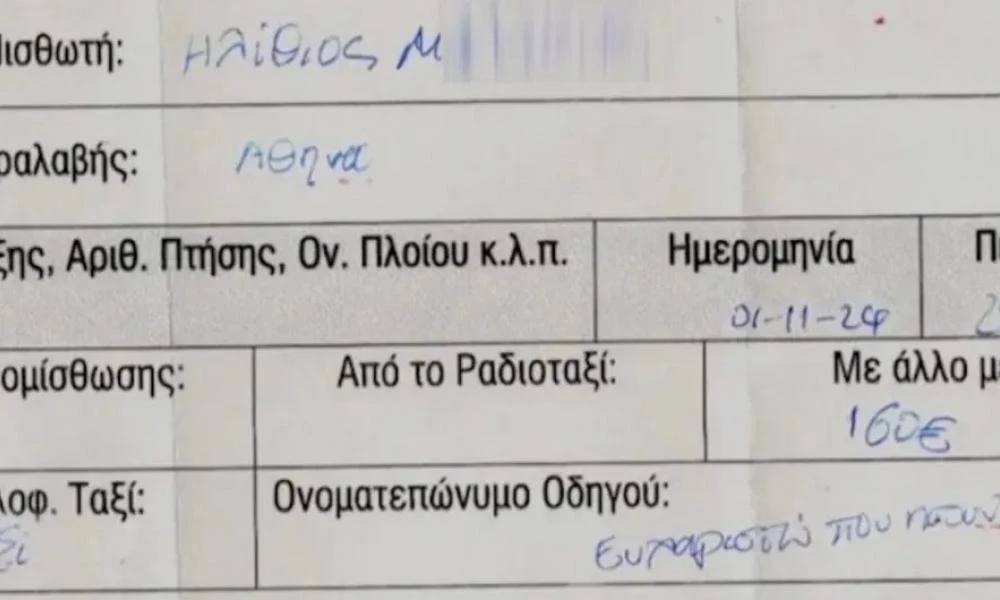 ισθωτή: Ηλίθιος Μ
ραλαβής: Αθηνα
ξης, Αριθ. Πτήσης, Ον. Πλοίου κ.λ.π. Ημερομηνία Π
01-11-24
ομίσθωσης: Από το Ραδιοταξί: Με άλλο μ
160€
οφ. Ταξί: Ονοματεπώνυμο Οδηγού:
ευχαριστώ που